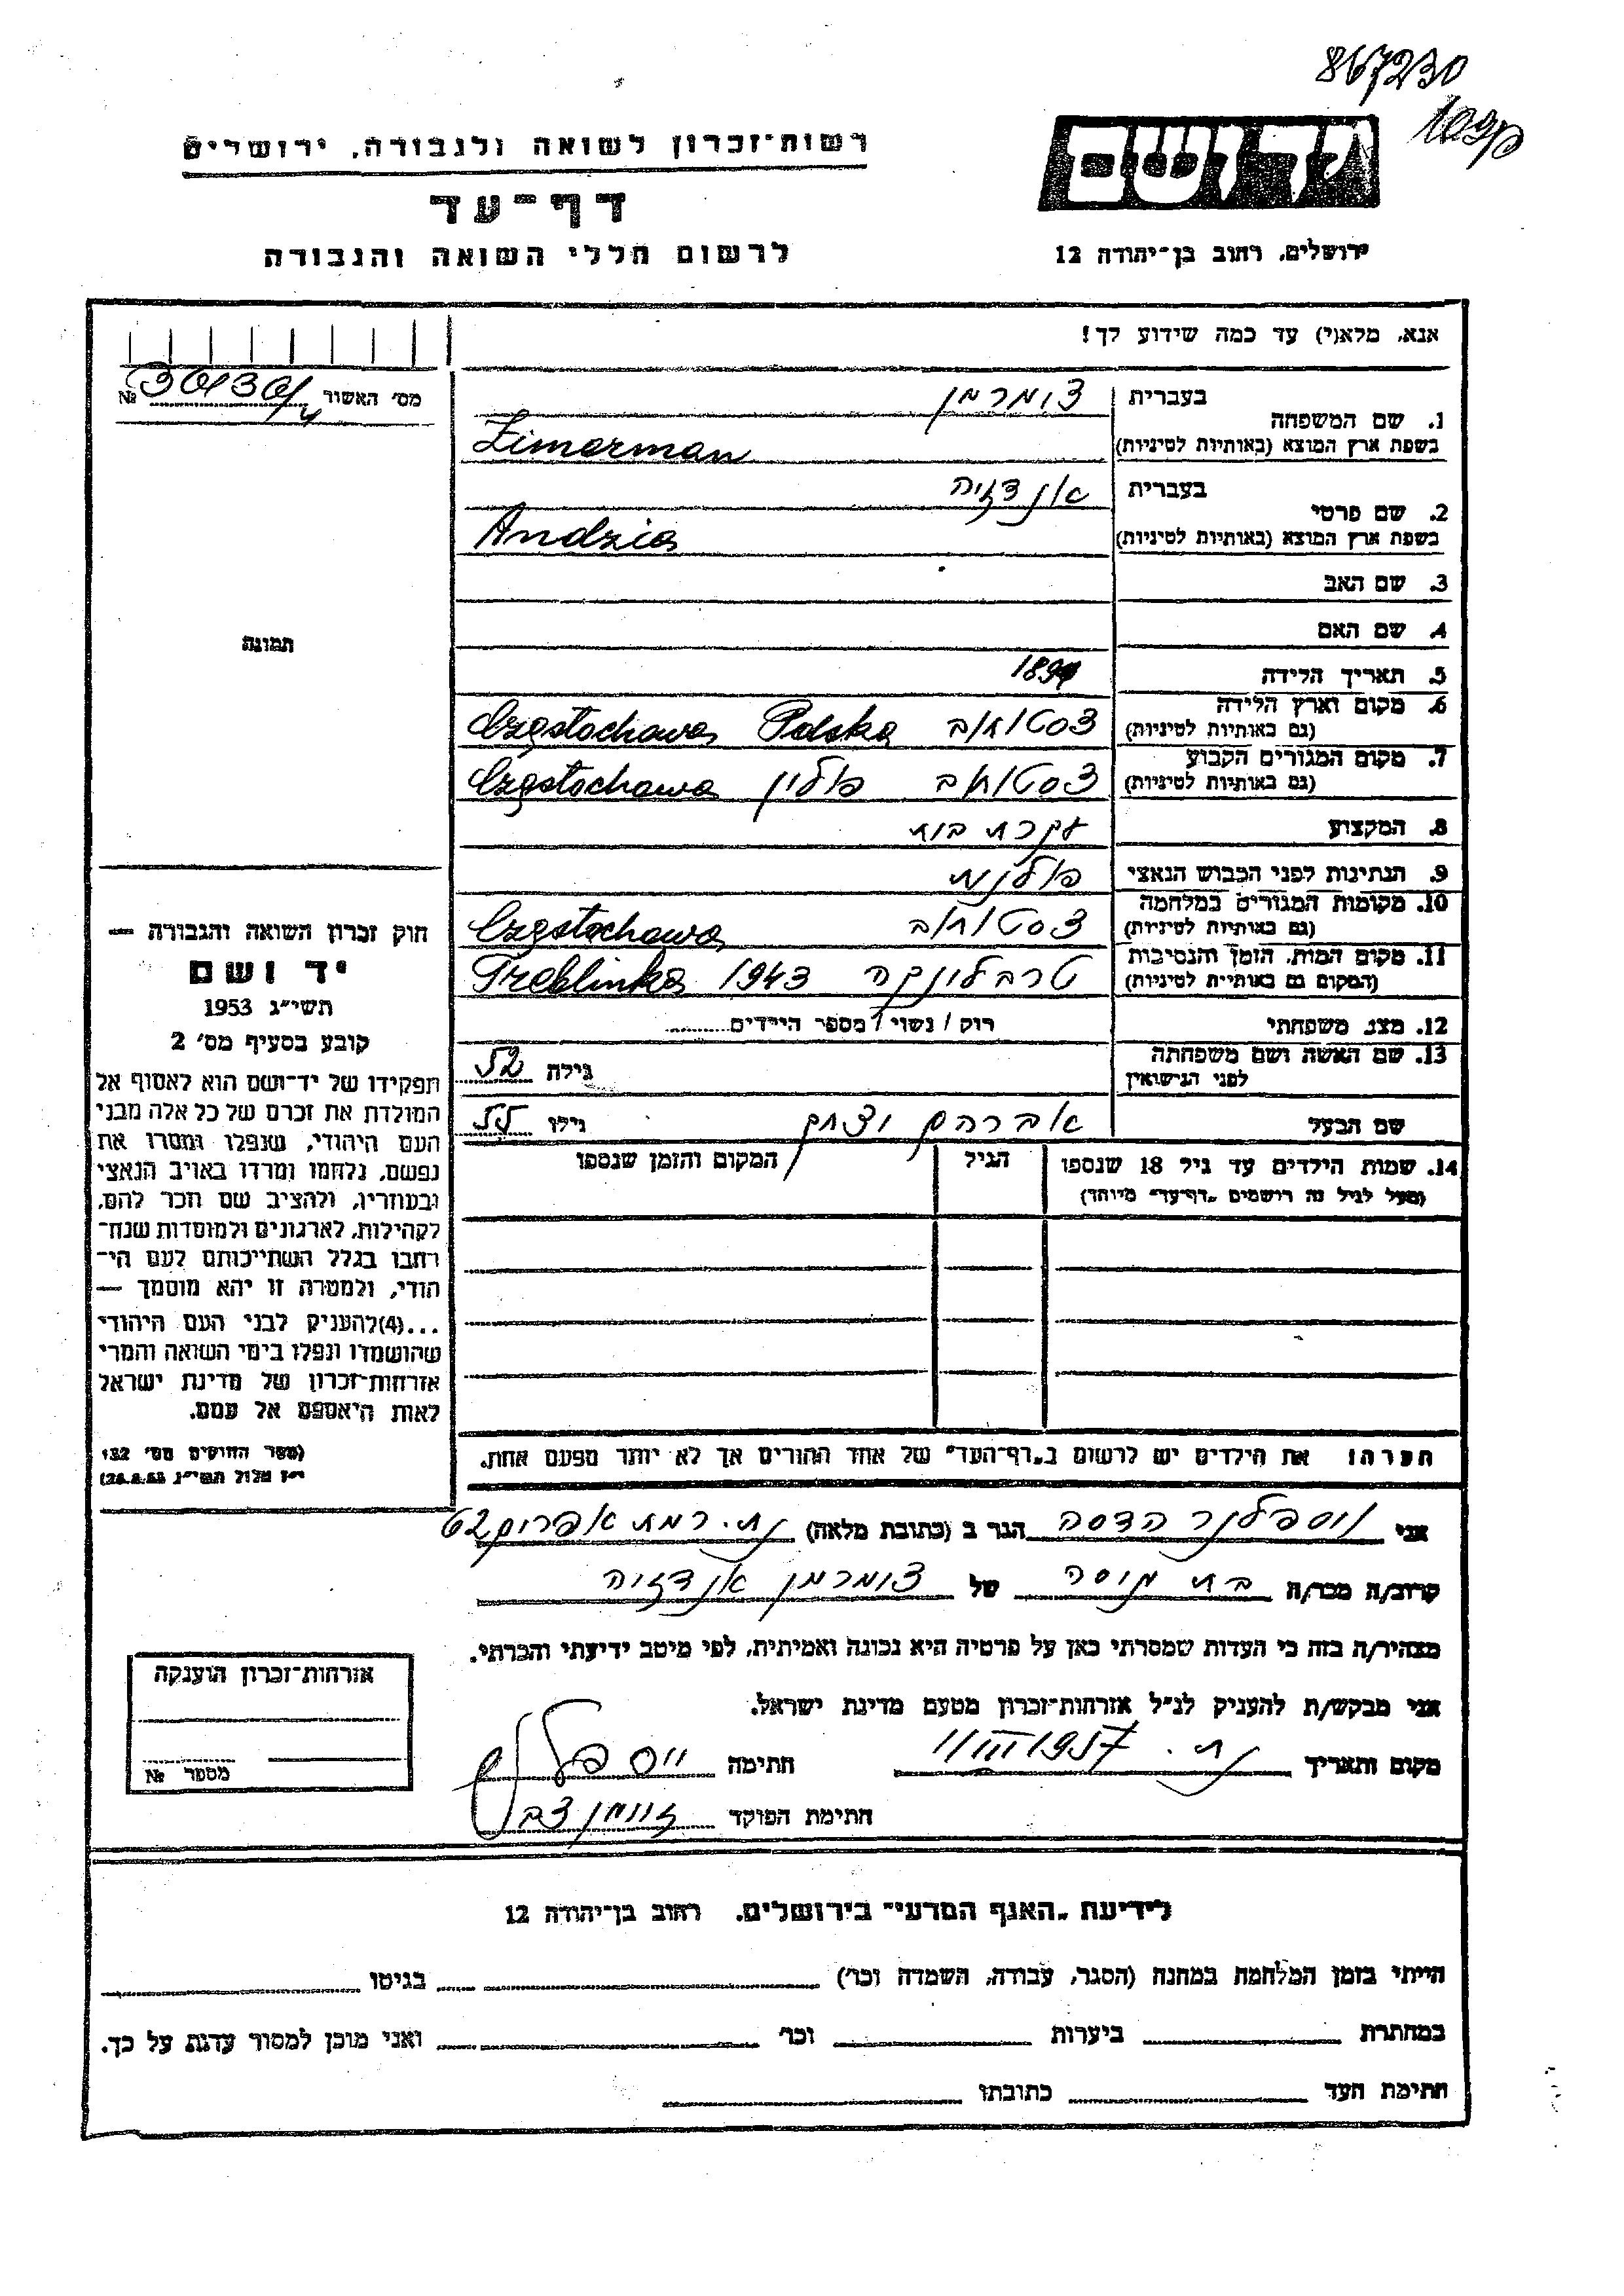 867230
רשות־זכרון לשואה ולגבורה, ירושלים
דף־עד
לרשום חללי השואה והגבורה
יד ושם
ירושלים, רחוב בן־יהודה 12
אנא, מלא(י) עד כמה שידוע לך!
מס' האשור №
1. שם המשפחה
בעברית צימרמן
בשפת ארץ המוצא (באותיות לטיניות) Zimerman
2. שם פרטי
בעברית אנדזיה
בשפת ארץ המוצא (באותיות לטיניות) Andzia
3. שם האב
4. שם האם
תמונה
5. תאריך הלידה
6. מקום וארץ הלידה (גם באותיות לטיניות) צסטוחוב Polska Częstochowa
7. מקום המגורים הקבוע (גם באותיות לטיניות) צסטוחוב פולין Częstochowa
8. המקצוע עקרת בית
9. הנתינות לפני הכבוש הנאצי פולנית
10. מקומות המגורים במלחמה (גם באותיות לטיניות) צסטוחוב Częstochowa
11. מקום המות, הזמן והנסיבות (המקום גם באותיות לטיניות) טרבלינקה 1943 Treblinka
12. מצב משפחתי רוק / נשוי / מספר הילדים
13. שם האשה ושם משפחתה לפני הנישואין גילה 52
שם הבעל אברהם יצחק גילו 55
14. שמות הילדים עד גיל 18 שנספו
(מעל לגיל זה רושמים "דף־עד" מיוחד)
הגיל
המקום והזמן שנספו
הערה: את הילדים יש לרשום ב"דף־העד" של אחד ההורים אך לא יותר מפעם אחת.
חוק זכרון השואה והגבורה —
יד ושם
תשי"ג 1953
קובע בסעיף מס' 2
תפקידו של יד־ושם הוא לאסוף אל
המולדת את זכרם של כל אלה מבני
העם היהודי, שנפלו ומסרו את
נפשם, נלחמו ומרדו באויב הנאצי
ובעוזריו, ולהציב שם וזכר להם,
לקהילות, לארגונים ולמוסדות שנח־
רבו בגלל השתייכותם לעם הי־
הודי, ולמטרה זו יהא מוסמך —
...(4) להעניק לבני העם היהודי
שהושמדו ונפלו בימי השואה והמרי
אזרחות־זכרון של מדינת ישראל
לאות היאספם אל עמם.
(ספר החוקים מס' 132
י"ז אלול תשי"ג 28.8.53)
אני ויספלנר הדסה הגר ב (כתובת מלאה) נת. רמת אפרים 62
קרוב/ה מכר/ה של צימרמן אנדזיה
מצהיר/ה בזה כי העדות שמסרתי כאן על פרטיה היא נכונה ואמיתית, לפי מיטב ידיעתי והכרתי.
אני מבקש/ת להעניק לנ"ל אזרחות־זכרון מטעם מדינת ישראל.
מקום ותאריך נת. 11 III 1957 חתימה
חתימת הפוקד
אזרחות־זכרון הוענקה
מספר №
לידיעת "האגף המדעי" בירושלים. רחוב בן־יהודה 12
הייתי בזמן המלחמה במחנה (הסגר, עבודה, השמדה וכו') בגיטו
במחתרת ביערות וכו' ואני מוכן למסור עדות על כך.
חתימת העד כתובתו